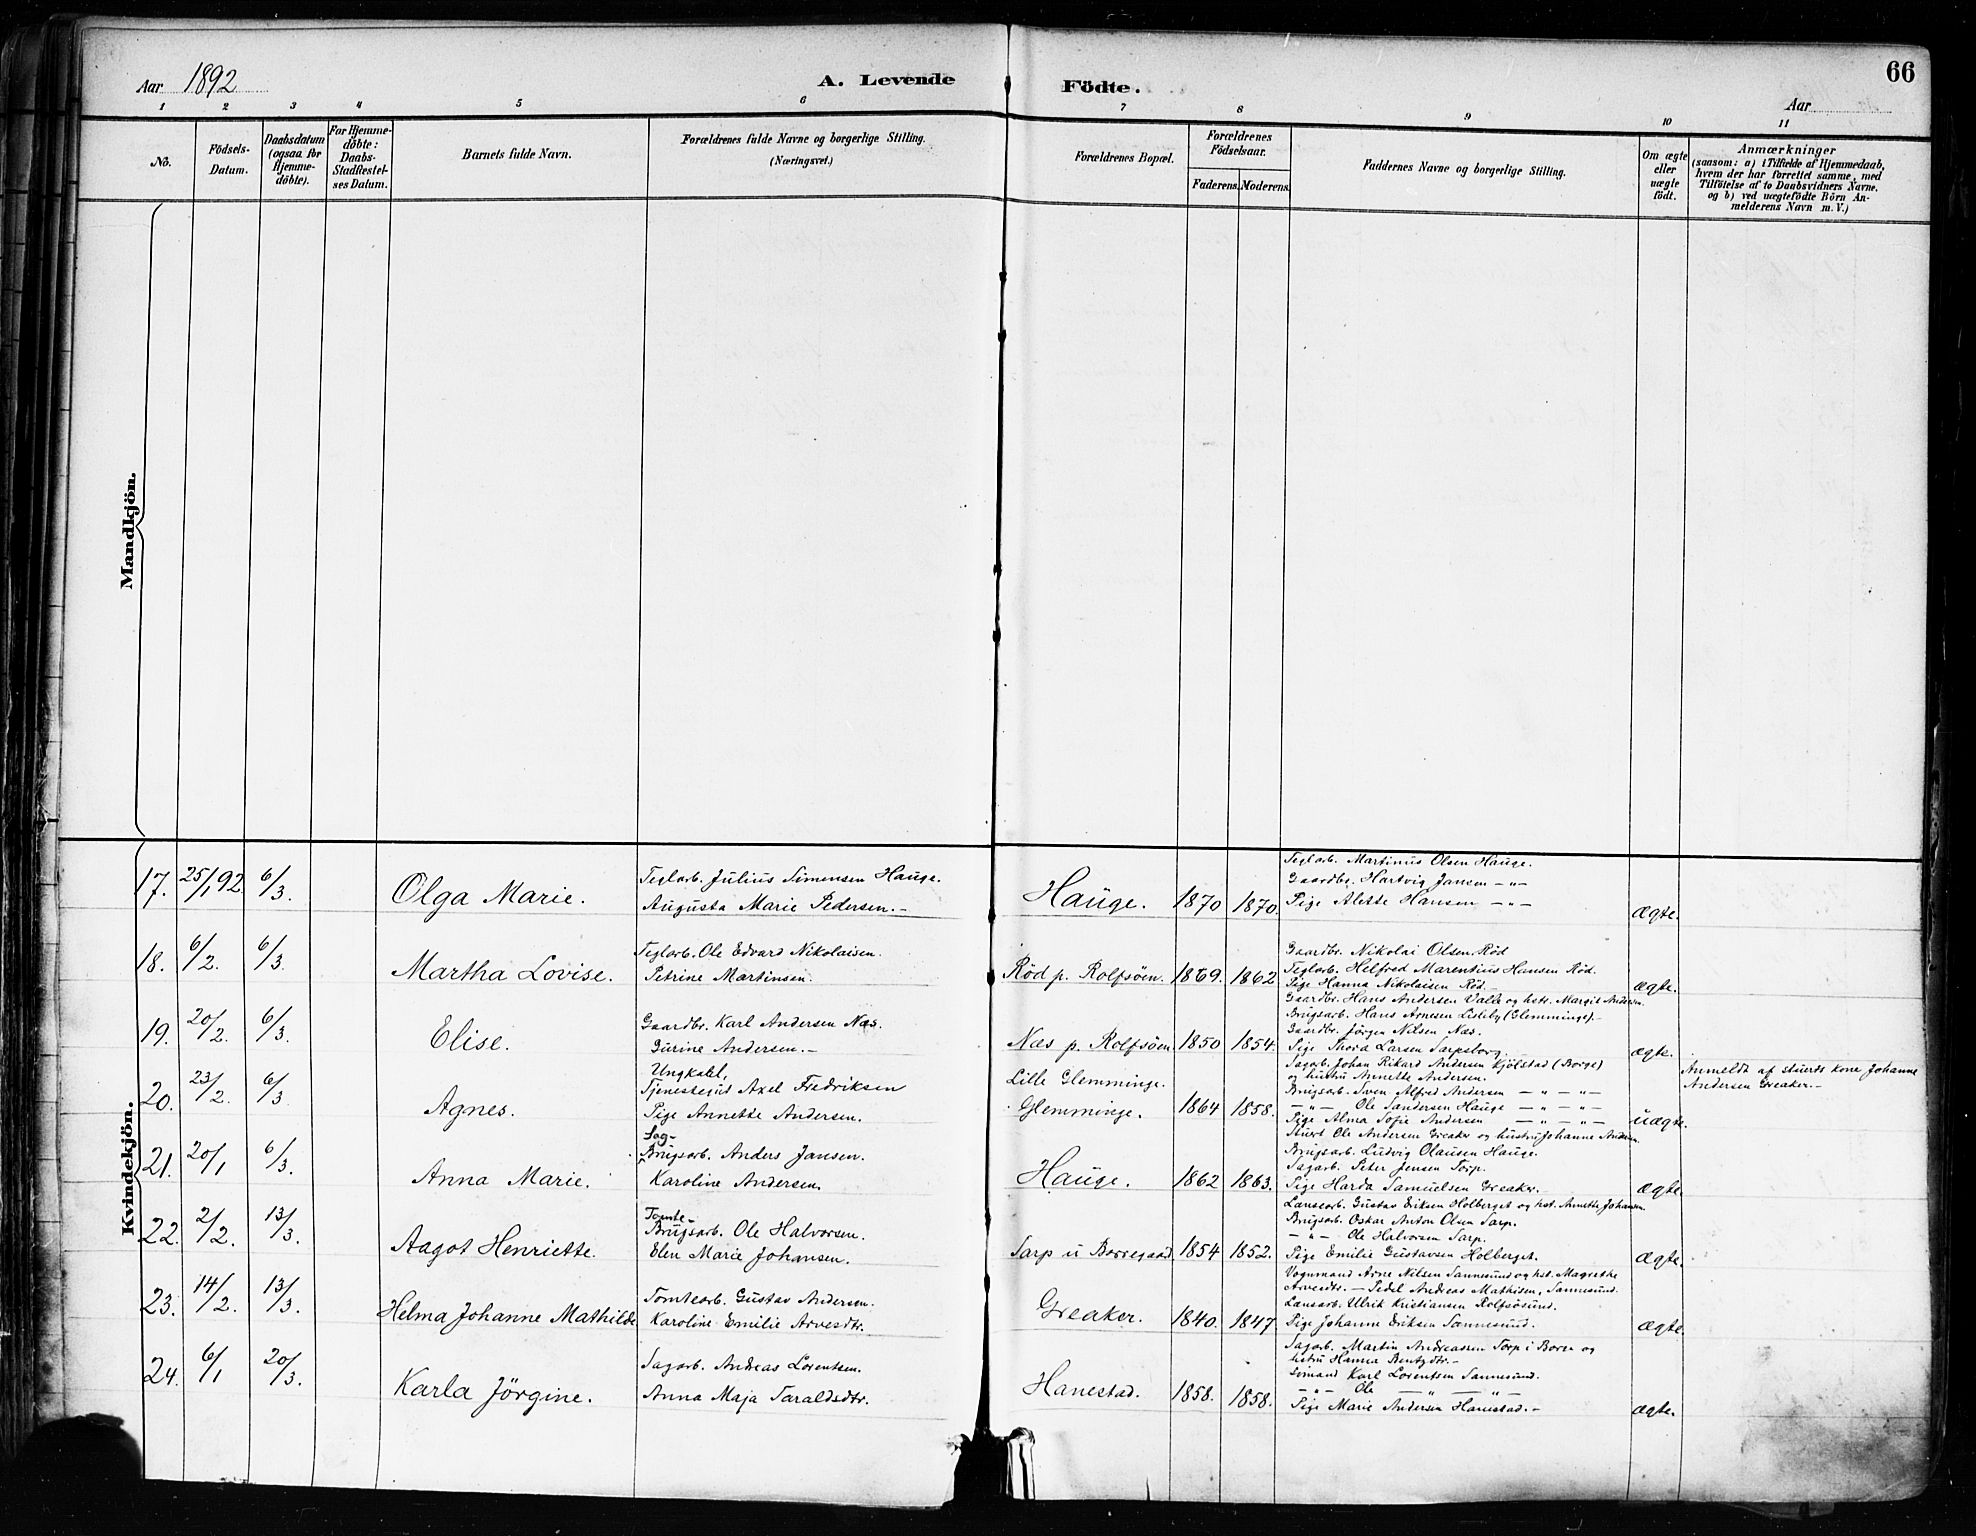 66
Aar 1892
A. Levende Födte.
Aar
1 2 3 4 5 6 7 8 9 10 11
No.
Födsels-
Datum.
Daabsdatum
(ogsaa for
Hjemme-
döbte).
For Hjemme-
döbte:
Daabs-
Stadfæstel-
ses Datum.
Barnets fulde Navn.
Forældrenes fulde Navne og borgerlige Stilling.
(Næringsvei.)
Forældrenes Bopæl.
Forældrenes
Födselsaar.
Faderens. Moderens.
Faddernes Navne og borgerlige Stilling.
Om ægte
eller
uægte
födt.
Anmærkninger
(saasom: a) i Tilfælde af Hjemmedaab,
hvem der har forrettet samme, med
Tilföielse af to Daabsvidners Navne.
og b) ved uægtefödte Börn An-
melderens Navn m. V.)
Mandkjön.
Kvindekjön.
17. 25/1 92 6/3. Olga Marie.
Teglarb. Julius Simensen Hauge.
Augusta Marie Pedersen.-
Hauge. 1870 1870.
Teglarb. Martinus Olsen Hauge.
Gaardbr. Hartvig Jansen - " -
Pige Alette Hansen - " -
ægte.
18. 6/2. 6/3. Martha Lovise.
Teglarb. Ole Edvard Nikolaisen.
Petrine Martinsen.
Röd p. Rolfsöen. 1869. 1862
Gaardbr. Nikolai Olsen, Röd
Teglarb. Helfred Marentius Hansen Röd.
Pige Hanna Nikolaisen Röd.-
ægte.
19. 20/2. 6/3. Elise.
Gaardbr. Karl Andersen Næs.
Gurine Andersen.-
Næs p. Rolfsöen. 1850 1854.
Gaardbr. Hans Andersen Valle og hstr. Margit Andersen.
Brugsarb. Hans Arnesen Lisleby (Glemminge).-
Gaardbr. Jörgen Nilsen Næs.
Pige Thora Larsen Sarpsborg.
ægte.
20. 23/2. 6/3. Agnes.
Ungkahl,
Tjenestegut Axel Fredriksen
Pige Annette Andersen.
Lille Glemminge.
Glemminge. 1864 1858.
Sagarb. Johan Rikard Andersen Kjölstad (Borge)
og hustru Annette Andersen.
Brugsarb. Sven Alfred Andersen - " - " -
- " - Ole Sandersen Hauge - " - " -
Pige Alma Sofie Andersen - " - " -
uægte.
Anmeldt af stuerds kone Johanne
Andersen Greaker.-
21. 20/1 6/3. Anna Marie.
Sag-
Brugsarb. Anders Jansen.
Karoline Andersen.
Hauge. 1862 1863.
Stuert Ole Andersen Greaker og hustru Johanne Andersen.
Brugsarb. Ludvig Olausen Hauge.
Sagarb. Peter Jensen Torp.
Pige Harda Samuelsen Greaker.-
ægte.
22. 2/2. 13/3. Aagot Henriette.
Tomte-
Brugsarb. Ole Halvorsen.
Elen Marie Johansen.
Sarp u Borregaard. 1854 1852.
Lænsearb. Gustav Eriksen Holberget og hst. Annette Johansen.
Brugsarb. Oskar Anton Olsen Sarp.
- " - Ole Halvorsen Sarp.
Pige Emilie Gustavsen Holberget.
ægte.
23. 14/2. 13/3. Helma Johanne Mathilde
Tomtearb. Gustav Andersen.
Karoline Emilie Arvesdtr.
Greaker. 1840. 1847
Vognmand Arne Nilsen Sannesund og hst. Magrethe
Arvesdtr. - Pedel Andreas Mathisen, Sannesund.
Lænsarb. Ulrik Kristiansen Rolfsösund.
Pige Johanne Eriksen Sannesund.
ægte.
24. 6/1 20/3. Karla Jörgine.
Sagarb. Andreas Lorentsen.
Anna Maja Taraldsdtr.
Hanestad. 1858. 1858.
Sagarb. Martin Andreassen Torp i Borge og
hstru Hanna Bentsdtr.-
Sömand Karl Lorentsen Sannesund.
- " - Ole - " - - " -
Pige Marie Andersen Hanestad.-
ægte.